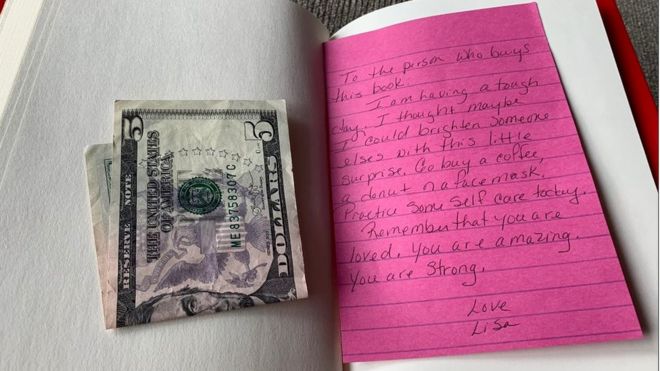 5
5
THE UNITED STATES
OF AMERICA
RESERVE NOTE
ME83758307C
DOLLARS
To the person who buys
this book:
I am having a tough
day. I thought maybe
I could brighten someone
elses with this little
surprise. Go buy a coffee,
a donut or a face mask.
Practice some self care today.
Remember that you are
loved. You are amazing.
You are strong.
Love
Lisa